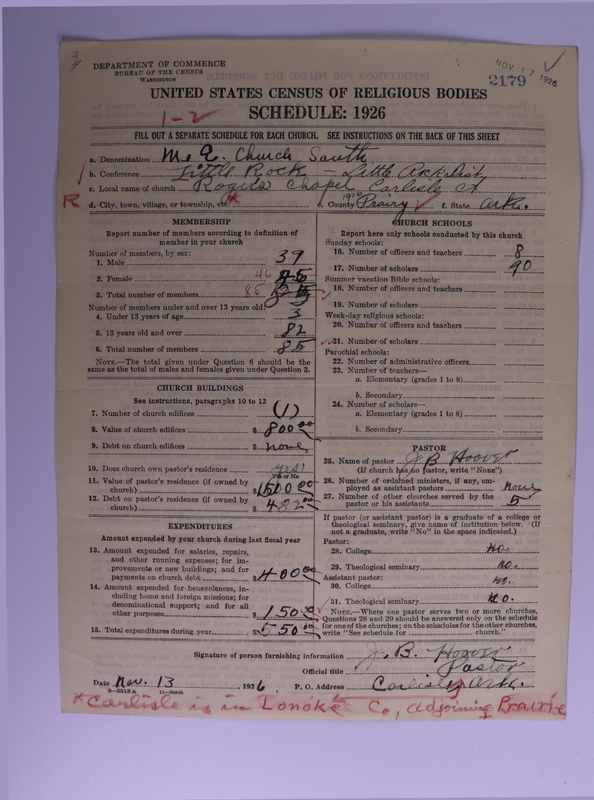 3
DEPARTMENT OF COMMERCE
BUREAU OF THE CENSUS
WASHINGTON
NOV 17 1926
2179
UNITED STATES CENSUS OF RELIGIOUS BODIES
SCHEDULE: 1926
1-2
FILL OUT A SEPARATE SCHEDULE FOR EACH CHURCH. SEE INSTRUCTIONS ON THE BACK OF THIS SHEET
a. Denomination M. E. Church South
b. Conference Little Rock - Little Rock dist,
c. Local name of church Rogers Chapel Carlisle Ct
R d. City, town, village, or township, etc. * e. County Prairy f. State Ark.
MEMBERSHIP
Report number of members according to definition of
member in your church
Number of members, by sex:
1. Male 39
2. Female 46 45
3. Total number of members 85
Number of members under and over 13 years old:
4. Under 13 years of age 3
5. 13 years old and over 82
6. Total number of members 85
NOTE.—The total given under Question 6 should be the
same as the total of males and females given under Question 3.
CHURCH BUILDINGS
See instructions, paragraphs 10 to 12
7. Number of church edifices (1)
8. Value of church edifices $ 800.00
9. Debt on church edifices $ none
10. Does church own pastor's residence yes
Yes or No
11. Value of pastor's residence (if owned by
church) $ 1500.00
12. Debt on pastor's residence (if owned by
church) $ 482.00
EXPENDITURES
Amount expended by your church during last fiscal year
13. Amount expended for salaries, repairs,
and other running expenses; for im-
provements or new buildings; and for
payments on church debt $ 400.00
14. Amount expended for benevolences, in-
cluding home and foreign missions; for
denominational support; and for all
other purposes $ 150.00
15. Total expenditures during year $ 550.00
CHURCH SCHOOLS
Report here only schools conducted by this church
Sunday schools:
16. Number of officers and teachers 8
17. Number of scholars 90
Summer vacation Bible schools:
18. Number of officers and teachers
19. Number of scholars
Week-day religious schools:
20. Number of officers and teachers
21. Number of scholars
Parochial schools:
22. Number of administrative officers
23. Number of teachers—
a. Elementary (grades 1 to 8)
b. Secondary
24. Number of scholars—
a. Elementary (grades 1 to 8)
b. Secondary
PASTOR
25. Name of pastor J B Hoover
(If church has no pastor, write "None")
26. Number of ordained ministers, if any, em-
ployed as assistant pastors none
27. Number of other churches served by the
pastor or his assistants 5
If pastor (or assistant pastor) is a graduate of a college or
theological seminary, give name of institution below. (If
not a graduate, write "No" in the space indicated.)
Pastor:
28. College no.
29. Theological seminary no.
Assistant pastor:
30. College no.
31. Theological seminary no.
NOTE.—Where one pastor serves two or more churches,
Questions 28 and 29 should be answered only on the schedule
for one of the churches; on the schedules for the other churches,
write "See schedule for church."
Signature of person furnishing information J. B. Hoover
Official title Pastor
Date Nov. 13, 1926 P. O. Address Carlisle, Ark.
8—5518a
* Carlisle is in Lonoke Co, adjoining Prairie